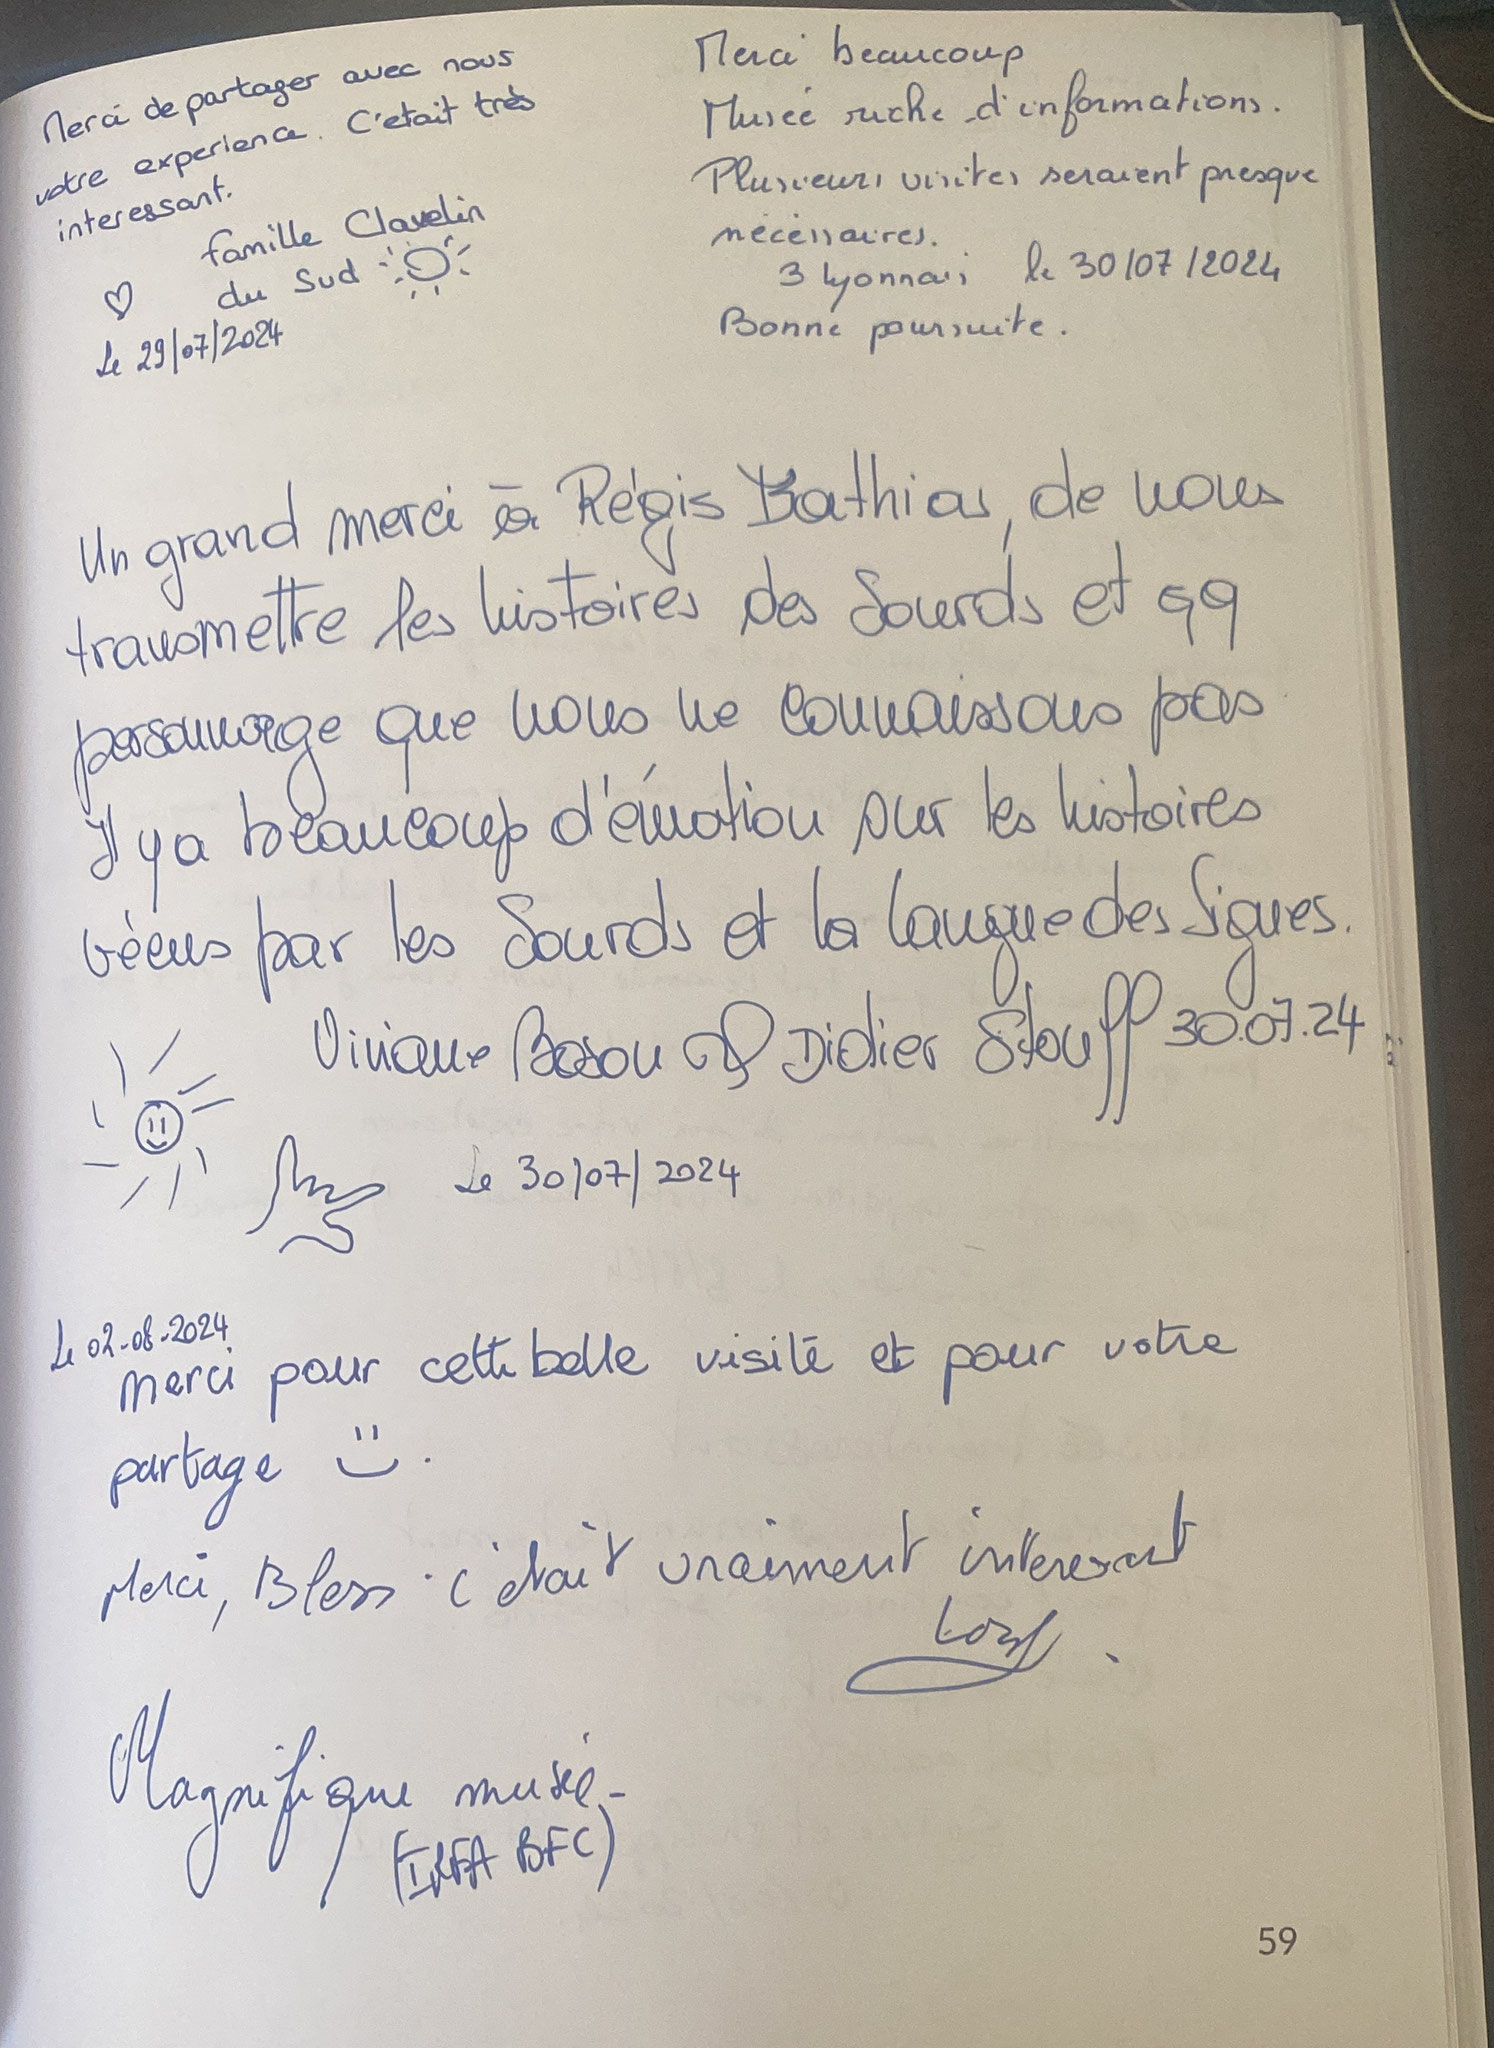 Merci de partager avec nous
votre experience. C'etait très
interessant.
famille Clavelin
du Sud
le 29/07/2024
Merci beaucoup
Musée riche d'informations.
Plusieurs visites seraient presque
nécessaires.
3 lyonnais le 30/07/2024
Bonne poursuite.
Un grand merci à Régis de nous
transmettre les histoires des Sourds et qq
personnage que nous ne connaissons pas
Il y a beaucoup d'émotion sur les histoires
vécus par les Sourds et la langue des Signes.
Didier Stouff 30.07.24
Le 30/07/2024
Le 02-08-2024
Merci pour cette belle visite et pour votre
partage
Merci, c'était vraiment interesant
Magnifique musée
BFC)
59